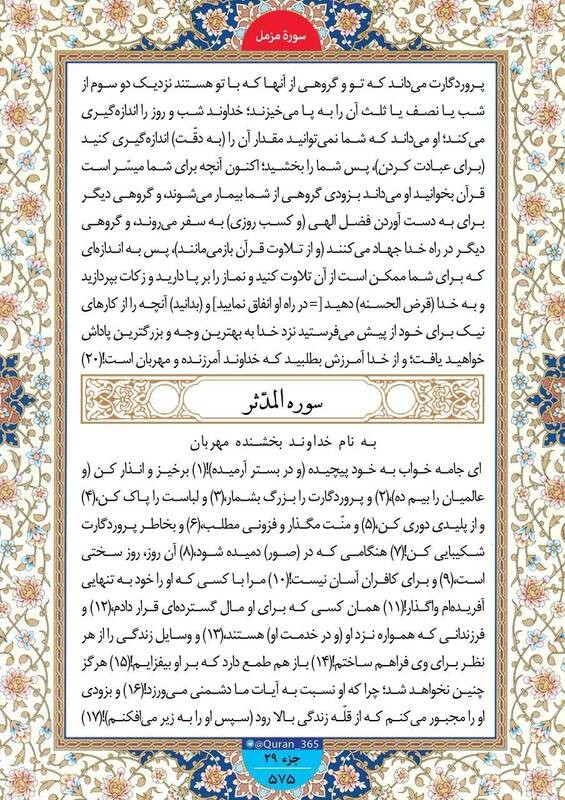 سورة مزمل
پروردگارت می‌داند که تو و گروهی از آنها که با تو هستند نزدیک دو سوم از
شب یا نصف یا ثلث آن را به پا می‌خیزند؛ خداوند شب و روز را اندازه‌گیری
می‌کند؛ او می‌داند که شما نمی‌توانید مقدار آن را (به دقّت) اندازه‌گیری کنید
(برای عبادت کردن)، پس شما را بخشید؛ اکنون آنچه برای شما میسّر است
قرآن بخوانید او می‌داند بزودی گروهی از شما بیمار می‌شوند، و گروهی دیگر
برای به دست آوردن فضل الهی (و کسب روزی) به سفر می‌روند، و گروهی
دیگر در راه خدا جهاد می‌کنند (و از تلاوت قرآن بازمی‌مانند)، پس به اندازه‌ای
که برای شما ممکن است از آن تلاوت کنید و نماز را بر پا دارید و زکات بپردازید
و به خدا (قرض الحسنه) دهید [= در راه او انفاق نمایید] و (بدانید) آنچه را از کارهای
نیک برای خود از پیش می‌فرستید نزد خدا به بهترین وجه و بزرگترین پاداش
خواهید یافت؛ و از خدا آمرزش بطلبید که خداوند آمرزنده و مهربان است!(۲۰)
سوره المدّثر
به نام خداوند بخشنده مهربان
ای جامه خواب به خود پیچیده (و در بستر آرمیده)!(۱) برخیز و انذار کن (و
عالمیان را بیم ده)،(۲) و پروردگارت را بزرگ بشمار،(۳) و لباست را پاک کن،(۴)
و از پلیدی دوری کن،(۵) و منّت مگذار و فزونی مطلب،(۶) و بخاطر پروردگارت
شکیبایی کن!(۷) هنگامی که در (صور) دمیده شود،(۸) آن روز، روز سختی
است،(۹) و برای کافران آسان نیست!(۱۰) مرا با کسی که او را خود به تنهایی
آفریده‌ام واگذار!(۱۱) همان کسی که برای او مال گسترده‌ای قرار دادم،(۱۲) و
فرزندانی که همواره نزد او (و در خدمت او) هستند،(۱۳) و وسایل زندگی را از هر
نظر برای وی فراهم ساختم!(۱۴) باز هم طمع دارد که بر او بیفزایم!(۱۵) هرگز
چنین نخواهد شد؛ چرا که او نسبت به آیات ما دشمنی می‌ورزد!(۱۶) و بزودی
او را مجبور می‌کنم که از قلّه زندگی بالا رود (سپس او را به زیر می‌افکنم)!(۱۷)
@Quran_365
جزء ۲۹
۵۷۵